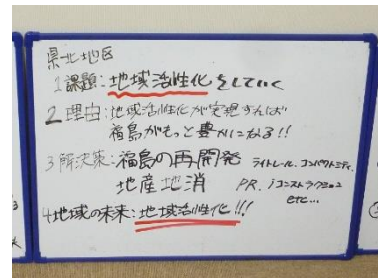 県北地区
1 課題:地域活性化をしていく
2 理由:地域活性化が実現すれば
福島がもっと豊かになる!!
3 解決策:福島の再開発 ライトレール、コンパクトシティ、
地産地消 PR、iコンストラクション
etc...
4 地域の未来:地域活性化!!!